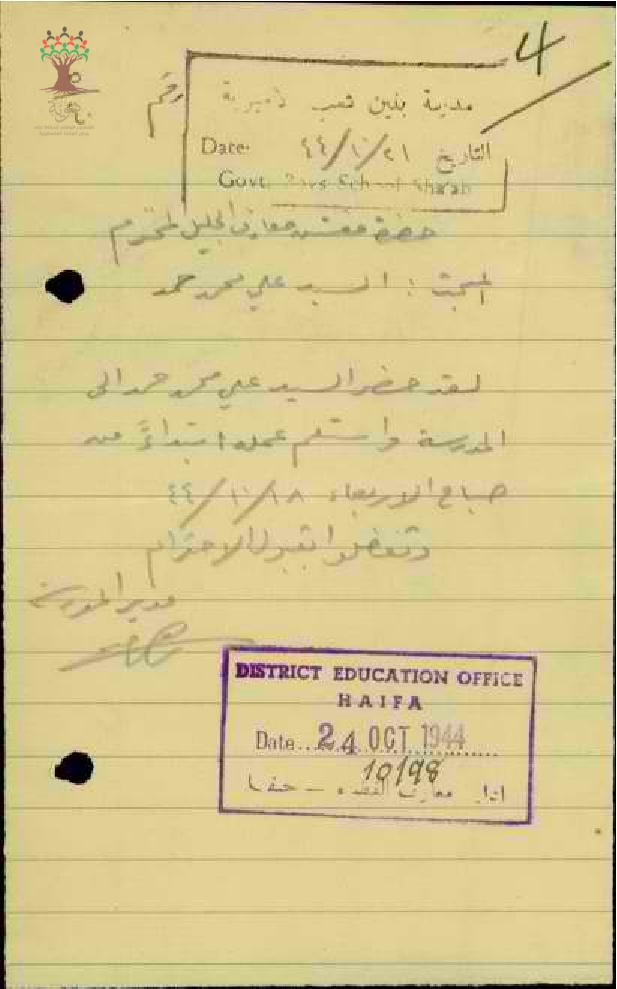 4
رقم
مدرسة بنين شعب الاميرية
Date. ٤٤/١٠/٢١ التاريخ
Govt. Boys School Sha'ab
حضرة مفتش معارف الجليل المحترم
المبحث : السيد علي محمد حمد
لقد حضر السيد علي محمد حمد الى
المدرسة واستلم عمله ابتداءً من
صباح الاربعاء ٤٤/١٠/١٨
وتفضلوا بقبول الاحترام
مدير المدرسة
DISTRICT EDUCATION OFFICE
HAIFA
Date... 24 OCT 1944
10198
ادارة معارف اللواء – حيفا